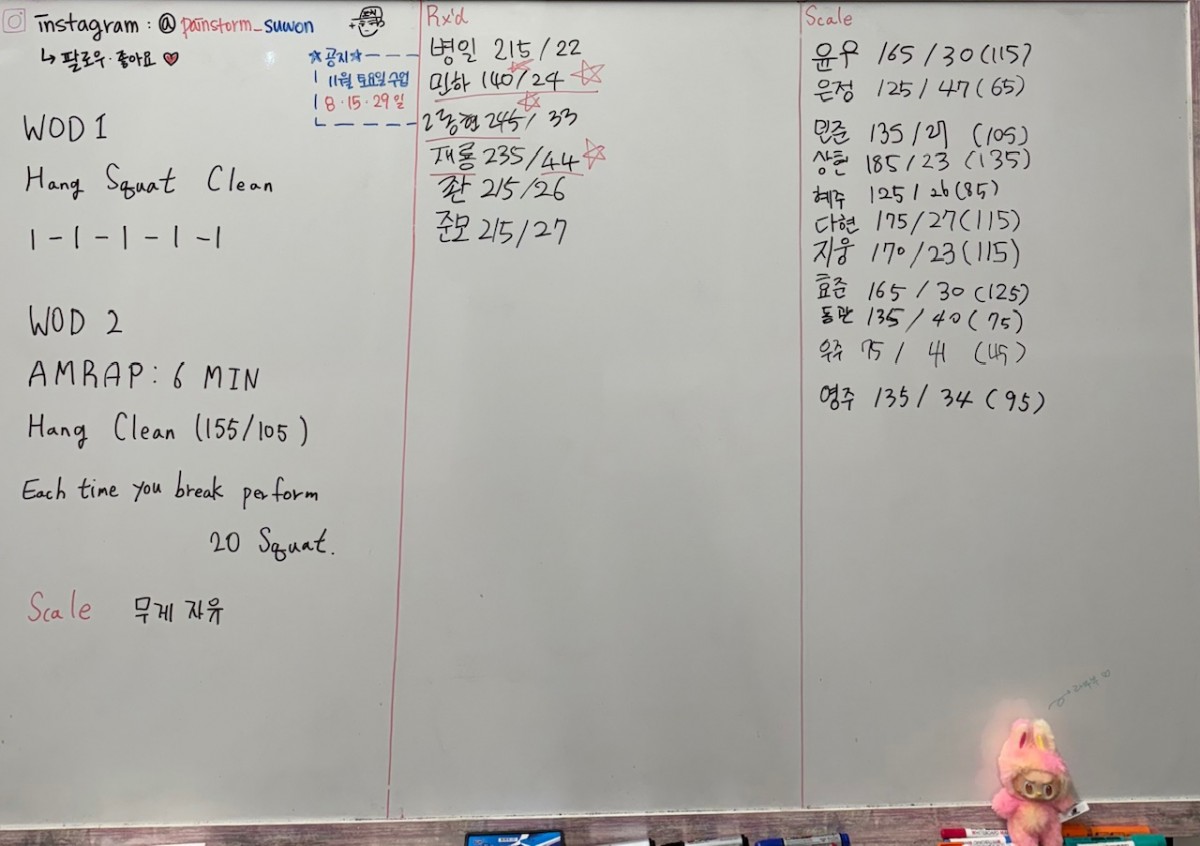 instagram : @painstorm_suwon
↳ 팔로우·좋아요 ♥
☆공지☆
11월 토요일 수업
8·15·29일
WOD 1
Hang Squat Clean
1-1-1-1-1
WOD 2
AMRAP: 6 MIN
Hang Clean (155/105)
Each time you break perform
20 Squat.
Scale 무게 자유
Rx'd
병일 215/22
민하 140/24
245/33
재룡 235/44
좌 215/26
준모 215/27
Scale
윤우 165/30(115)
은정 125/47(65)
민준 135/27 (105)
상현 185/23 (135)
혜주 125/26(85)
다현 175/27(115)
지웅 170/23(115)
효준 165/30(125)
동관 135/40(75)
우주 75/41 (45)
영주 135/34(95)